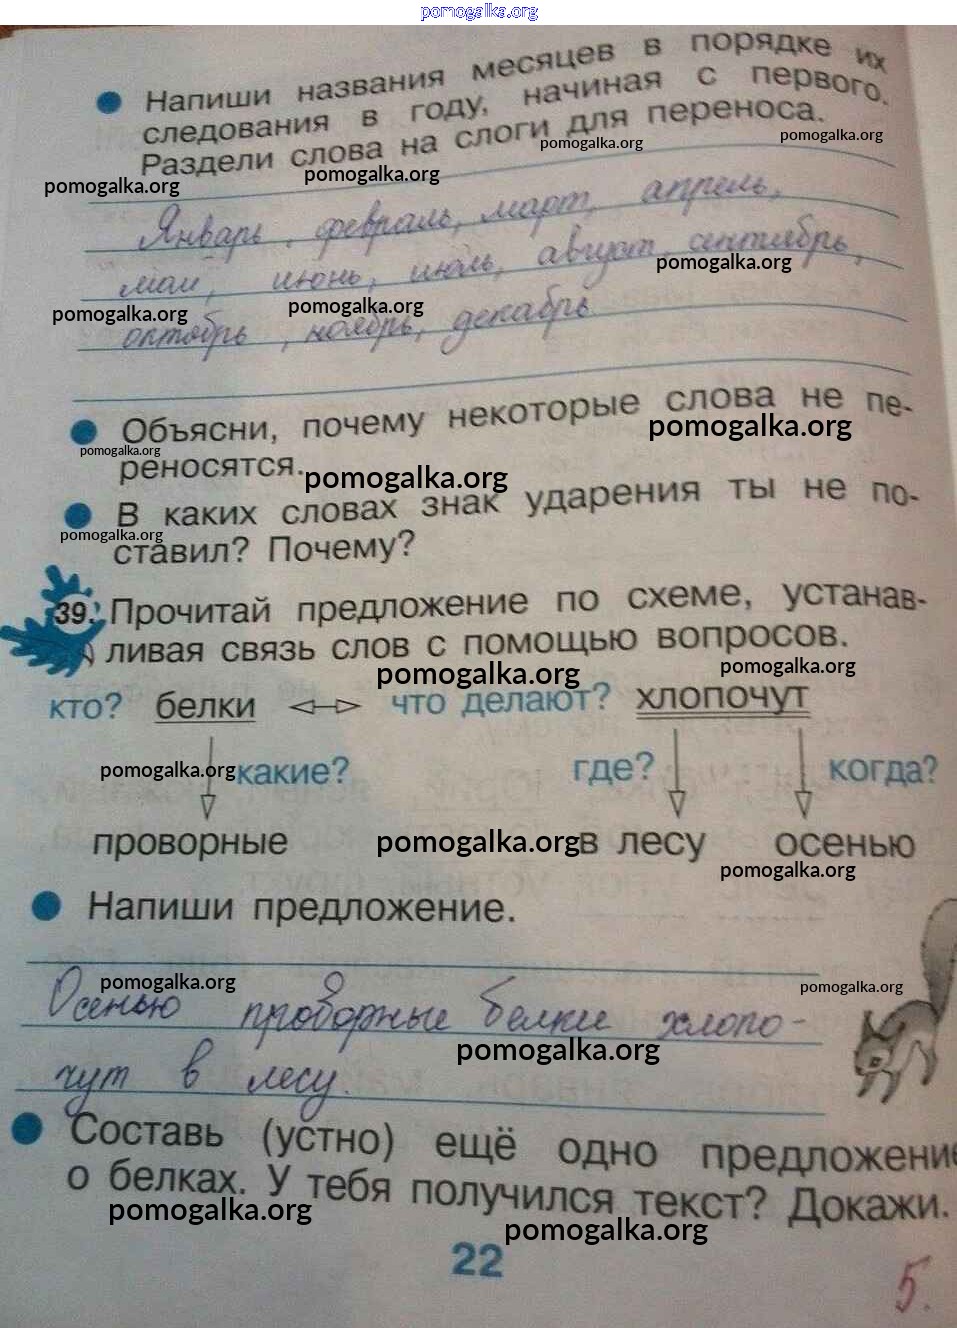 pomogalka.org
Напиши названия месяцев в порядке их
следования в году, начиная с первого.
Раздели слова на слоги для переноса.
pomogalka.org pomogalka.org
pomogalka.org pomogalka.org
Январь, февраль, март, апрель,
май, июнь, июль, август, сентябрь,
pomogalka.org
pomogalka.org pomogalka.org
октябрь, ноябрь, декабрь
Объясни, почему некоторые слова не пе-
pomogalka.org
pomogalka.org
реносятся.
pomogalka.org
В каких словах знак ударения ты не по-
pomogalka.org
ставил? Почему?
39. Прочитай предложение по схеме, устанав-
ливая связь слов с помощью вопросов.
pomogalka.org pomogalka.org
кто? белки что делают? хлопочут
pomogalka.org какие? где? когда?
проворные в лесу осенью
pomogalka.org
pomogalka.org
Напиши предложение.
pomogalka.org pomogalka.org
Осенью проворные белки хлопо-
pomogalka.org
чут в лесу.
Составь (устно) ещё одно предложение
о белках. У тебя получился текст? Докажи.
pomogalka.org pomogalka.org
22
5.